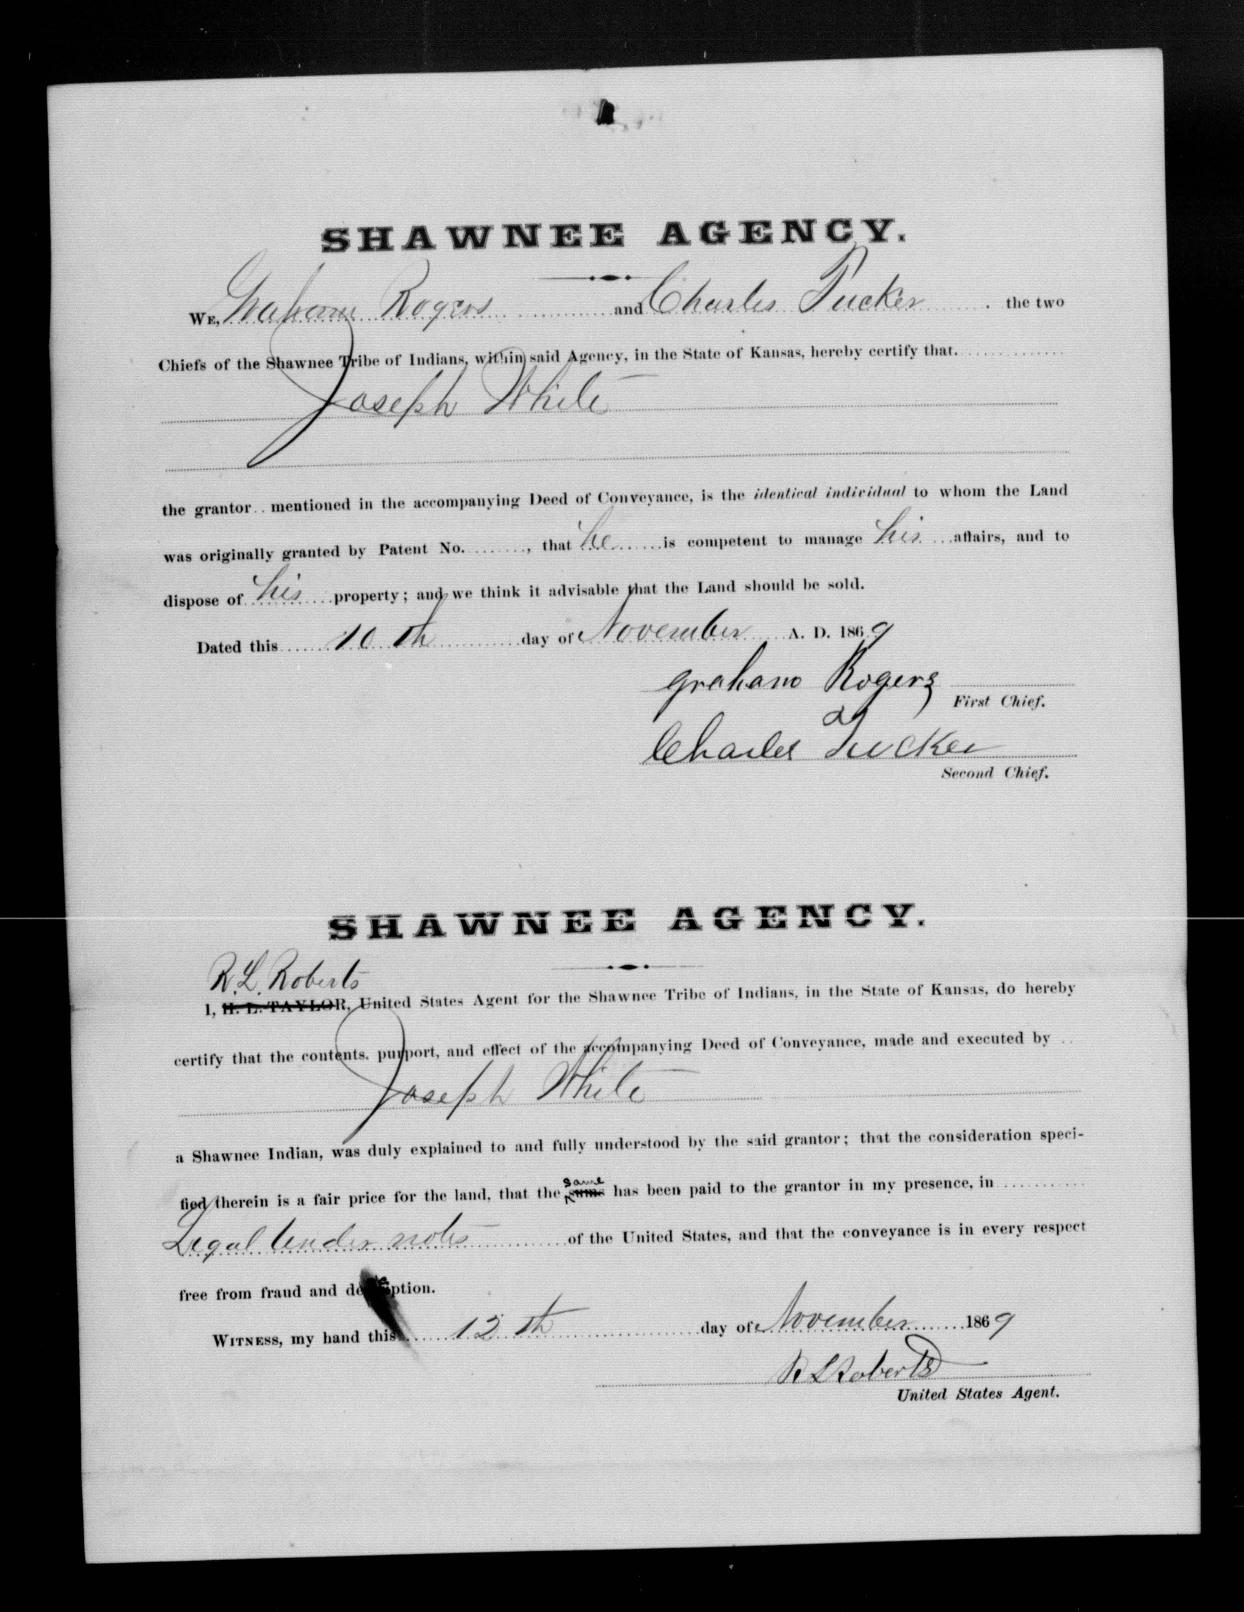 SHAWNEE AGENCY.
WE, Graham Rogers and Charles Tucker the two
Chiefs of the Shawnee Tribe of Indians, within said Agency, in the State of Kansas, hereby certify that
Joseph White
the grantor mentioned in the accompanying Deed of Conveyance, is the identical individual to whom the Land
was originally granted by Patent No. , that he is competent to manage his affairs, and to
dispose of his property; and we think it advisable that the Land should be sold.
Dated this 10th day of November A. D. 1869
graham Rogers
First Chief.
Charles Tucker
Second Chief.
SHAWNEE AGENCY.
R. L. Roberts
I, H. L. TAYLOR, United States Agent for the Shawnee Tribe of Indians, in the State of Kansas, do hereby
certify that the contents, purport, and effect of the accompanying Deed of Conveyance, made and executed by
Joseph White
a Shawnee Indian, was duly explained to and fully understood by the said grantor; that the consideration speci-
fied therein is a fair price for the land, that the same has been paid to the grantor in my presence, in
Legal tender notes of the United States, and that the conveyance is in every respect
free from fraud and deception.
WITNESS, my hand this 12th day of November 1869
R L Roberts
United States Agent.